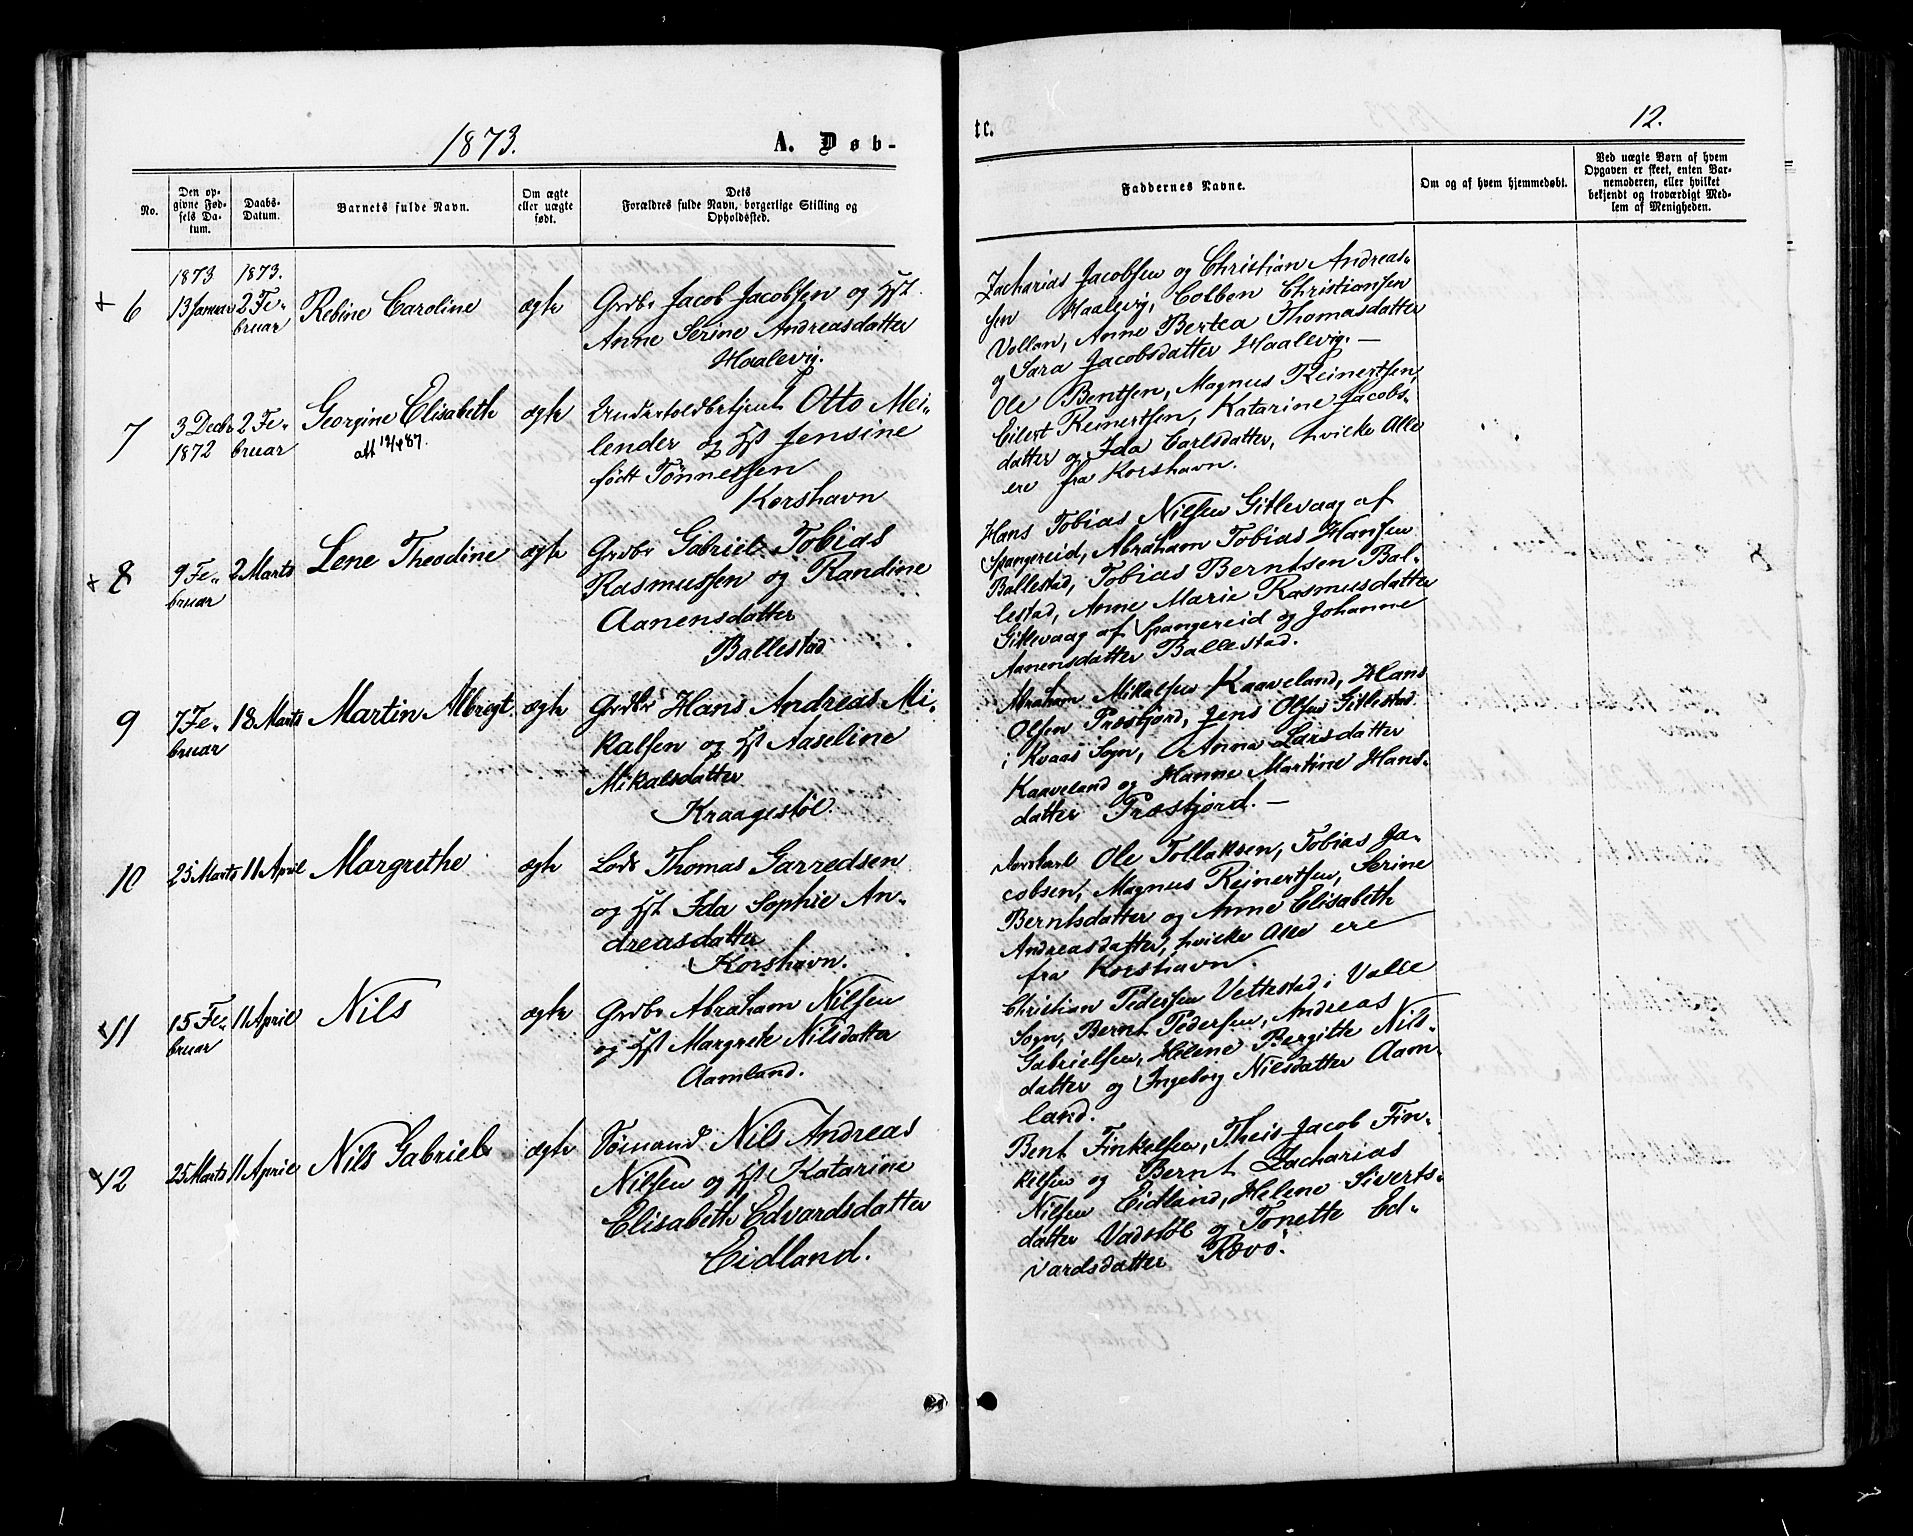 1873.
A. Døb-
No.
Den op-
givne Fød-
sels Da-
tum.
Daabs-
Datum.
Barnets fulde Navn.
Om ægte
eller uægte
født.
Dets
Forældres fulde Navn, borgerlige Stilling og
Opholdssted.
6
1873
13 Januar
1873.
2 Fe-
bruar
Rebine Caroline
ægte
Grdbr Jacob Jacobsen og Hst.
Anne Serine Andreasdatter
Haalevig.
7
3 Decbr
1872
2 Fe-
bruar
Georgine Elisabeth
att 12/4 87.
ægte
Undertoldbetjent Otto Mei-
lender og Hst Jensine
født Tønnessen
Korshavn
8
9 Fe-
bruar
2 Marts
Lene Theodine
ægte
Grdbr Gabriel Tobias
Rasmussen og Randine
Aanensdatter
Ballestad
9
7 Fe-
bruar
18 Marts
Martin Albregt.
ægte
Grdbr Hans Andreas Mi-
kalsen og Hst Aaseline
Mikalsdatter
Kraagestøl.
10
25 Marts
11 April
Margrethe
ægte
Lods Thomas Garredsen
og Hst. Ida Sophie An-
dreasdatter
Korshavn.
11
15 Fe-
bruar
11 April
Nils
ægte
Grdbr Abraham Nilsen
og Hst Margrete Nilsdatter
Aamland.
12
25 Marts
11 April
Nils Gabriel
ægte
Sømand Nils Andreas
Nilsen og Hst Katarine
Elisabeth Edvardsdatter
Eidland.
tc.
12.
Faddernes Navne.
Om og af hvem hjemmedøbt.
Ved uægte Børn af hvem
Opgaven er skeet, enten Bar-
nemoderen, eller hvilket
bekjendt og troværdigt Med-
lem af Menigheden.
Zacharias Jacobsen og Christian Andreas-
sen Haalevig, Colben Christiansen
Vollan, Anne Bertea Thomasdatter
og Sara Jacobsdatter Haalevig.—
Ole Bentsen, Magnus Reinertsen,
Eilert Reinertsen, Katarine Jacobs-
datter og Ida Carlsdatter, hvilke Alle
ere fra Korshavn.
Hans Tobias Nilsen Gitlevaag af
Spangereid, Abraham Tobias Hansen
Ballestad, Tobias Berntsen Bal-
lestad, Anne Marie Rasmusdatter
Gitlevaag af Spangereid og Johanne
Aanensdatter Ballestad.
Abraham Mikalsen Kaaveland, Hans
Olsen Præstjord, Jens Olsen Gitlestad
i Kvaas Sogn, Anna Larsdatter
Kaaveland og Hanne Martine Hans-
datter Præstjord.—
Ole Tollaksen, Tobias Ja-
cobsen, Magnus Reinertsen, Serine
Berntsdatter og Anne Elisabeth
Andreasdatter, hvilke Alle ere
fra Korshavn.
Christian Pedersen Vettestad i Valle
Sogn, Bernt Pedersen, Andreas
Gabrielsen, Helene Bergithe Nils-
datter og Ingeborg Nilsdatter Aam-
land.
Bent Finkelsen, Theis Jacob Fin-
kelsen og Bernt Zacharias
Nilsen Eidland, Helene Siverts-
datter Vadstøl og Tonette Ed-
vardsdatter Rævø.